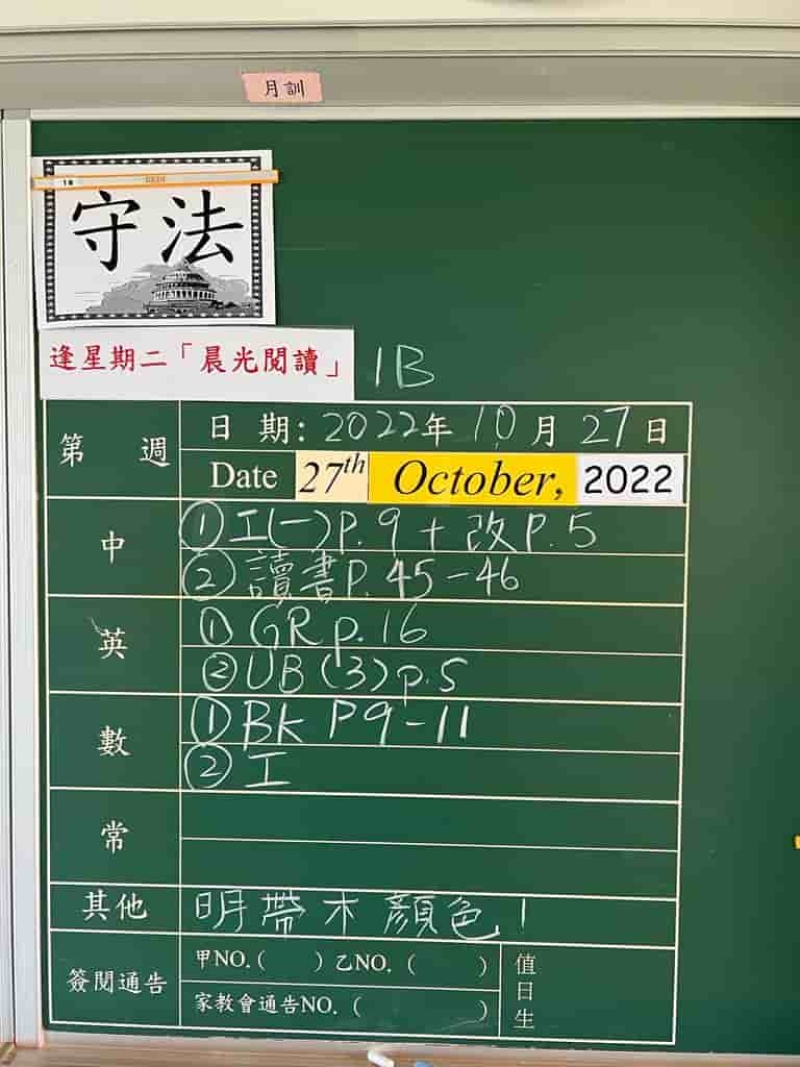 月訓
守法
逢星期二「晨光閱讀」 1B
第 週
日 期: 2022年 10月 27日
Date 27th October, 2022
中
① 工(一)P.9 + 改P.5
② 讀書P.45-46
英
① GR p.16
② UB (3) p.5
數
① BK P9-11
② 工
常
其他
明帶木顏色!
簽閱通告
甲NO.( )乙NO.( )
家教會通告NO.( )
值日生